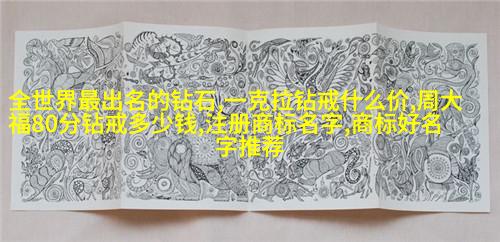 全世界最出名的钻石,一克拉钻戒什么价,周大
福80分钻戒多少钱,注册商标名字,商标好名
字推荐